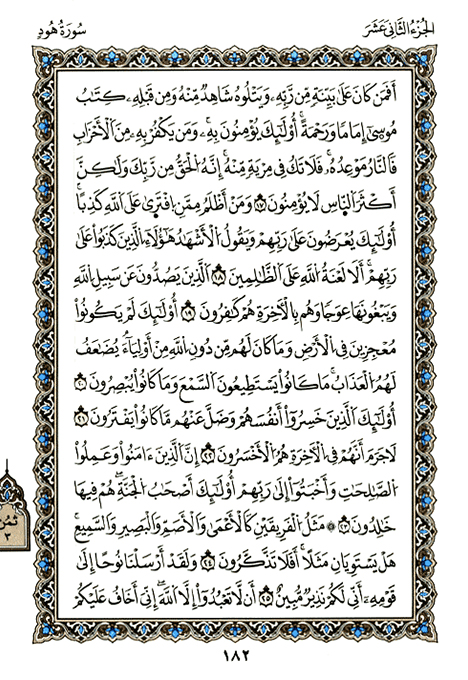 الجُزْءُ الثَّانِي عَشَرَ
سُورَةُ هُودٍ
أَفَمَن كَانَ عَلَىٰ بَيِّنَةٍ مِّن رَّبِّهِۦ وَيَتْلُوهُ شَاهِدٌ مِّنْهُ وَمِن قَبْلِهِۦ كِتَٰبُ
مُوسَىٰٓ إِمَامًا وَرَحْمَةً أُوْلَٰٓئِكَ يُؤْمِنُونَ بِهِۦ وَمَن يَكْفُرْ بِهِۦ مِنَ ٱلْأَحْزَابِ
فَٱلنَّارُ مَوْعِدُهُۥ فَلَا تَكُ فِى مِرْيَةٍ مِّنْهُ إِنَّهُ ٱلْحَقُّ مِن رَّبِّكَ وَلَٰكِنَّ
أَكْثَرَ ٱلنَّاسِ لَا يُؤْمِنُونَ ١٧ وَمَنْ أَظْلَمُ مِمَّنِ ٱفْتَرَىٰ عَلَى ٱللَّهِ كَذِبًا
أُوْلَٰٓئِكَ يُعْرَضُونَ عَلَىٰ رَبِّهِمْ وَيَقُولُ ٱلْأَشْهَٰدُ هَٰٓؤُلَآءِ ٱلَّذِينَ كَذَبُوا۟ عَلَىٰ
رَبِّهِمْ أَلَا لَعْنَةُ ٱللَّهِ عَلَى ٱلظَّٰلِمِينَ ١٨ ٱلَّذِينَ يَصُدُّونَ عَن سَبِيلِ ٱللَّهِ
وَيَبْغُونَهَا عِوَجًا وَهُم بِٱلْءَاخِرَةِ هُمْ كَٰفِرُونَ ١٩ أُوْلَٰٓئِكَ لَمْ يَكُونُوا۟
مُعْجِزِينَ فِى ٱلْأَرْضِ وَمَا كَانَ لَهُم مِّن دُونِ ٱللَّهِ مِنْ أَوْلِيَآءَ يُضَٰعَفُ
لَهُمُ ٱلْعَذَابُ مَا كَانُوا۟ يَسْتَطِيعُونَ ٱلسَّمْعَ وَمَا كَانُوا۟ يُبْصِرُونَ ٢٠
أُوْلَٰٓئِكَ ٱلَّذِينَ خَسِرُوٓا۟ أَنفُسَهُمْ وَضَلَّ عَنْهُم مَّا كَانُوا۟ يَفْتَرُونَ ٢١
لَا جَرَمَ أَنَّهُمْ فِى ٱلْءَاخِرَةِ هُمُ ٱلْأَخْسَرُونَ ٢٢ إِنَّ ٱلَّذِينَ ءَامَنُوا۟ وَعَمِلُوا۟
ٱلصَّٰلِحَٰتِ وَأَخْبَتُوٓا۟ إِلَىٰ رَبِّهِمْ أُوْلَٰٓئِكَ أَصْحَٰبُ ٱلْجَنَّةِ هُمْ فِيهَا
خَٰلِدُونَ ٢٣ ۞ مَثَلُ ٱلْفَرِيقَيْنِ كَٱلْأَعْمَىٰ وَٱلْأَصَمِّ وَٱلْبَصِيرِ وَٱلسَّمِيعِ
هَلْ يَسْتَوِيَانِ مَثَلًا أَفَلَا تَذَكَّرُونَ ٢٤ وَلَقَدْ أَرْسَلْنَا نُوحًا إِلَىٰ
قَوْمِهِۦٓ أَنِّى لَكُمْ نَذِيرٌ مُّبِينٌ ٢٥ أَن لَّا تَعْبُدُوٓا۟ إِلَّا ٱللَّهَ إِنِّىٓ أَخَافُ عَلَيْكُمْ
ثُمُن
٣
١٨٢